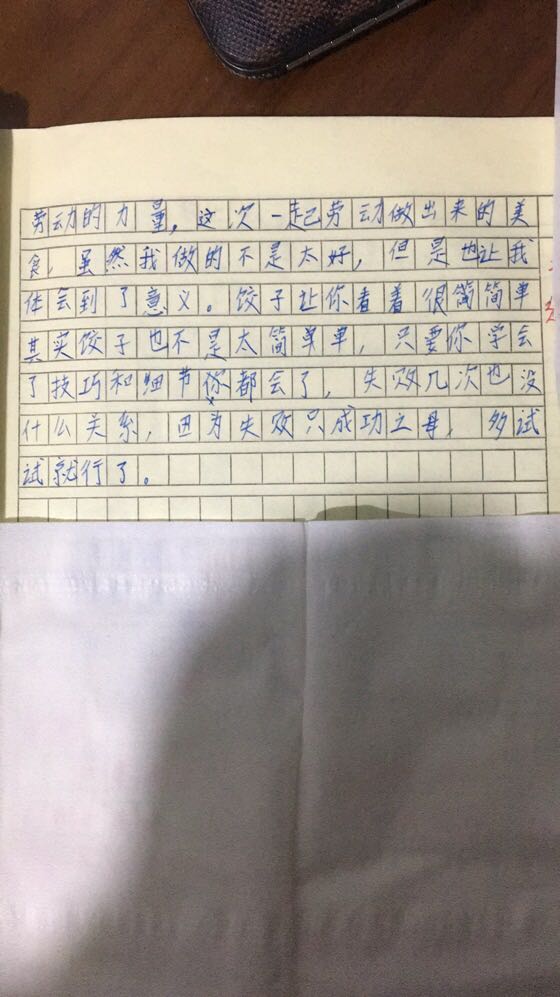 劳动的力量，这次一起劳动做出来的美
食，虽然我做的不是太好，但是也让我
体会到了意义。饺子让你看着很简简单
其实饺子也不是太简单单，只要你学会
了技巧和细节你都会了，失败几次也没
什么关系，因为失败只成功之母，多试
试就行了。